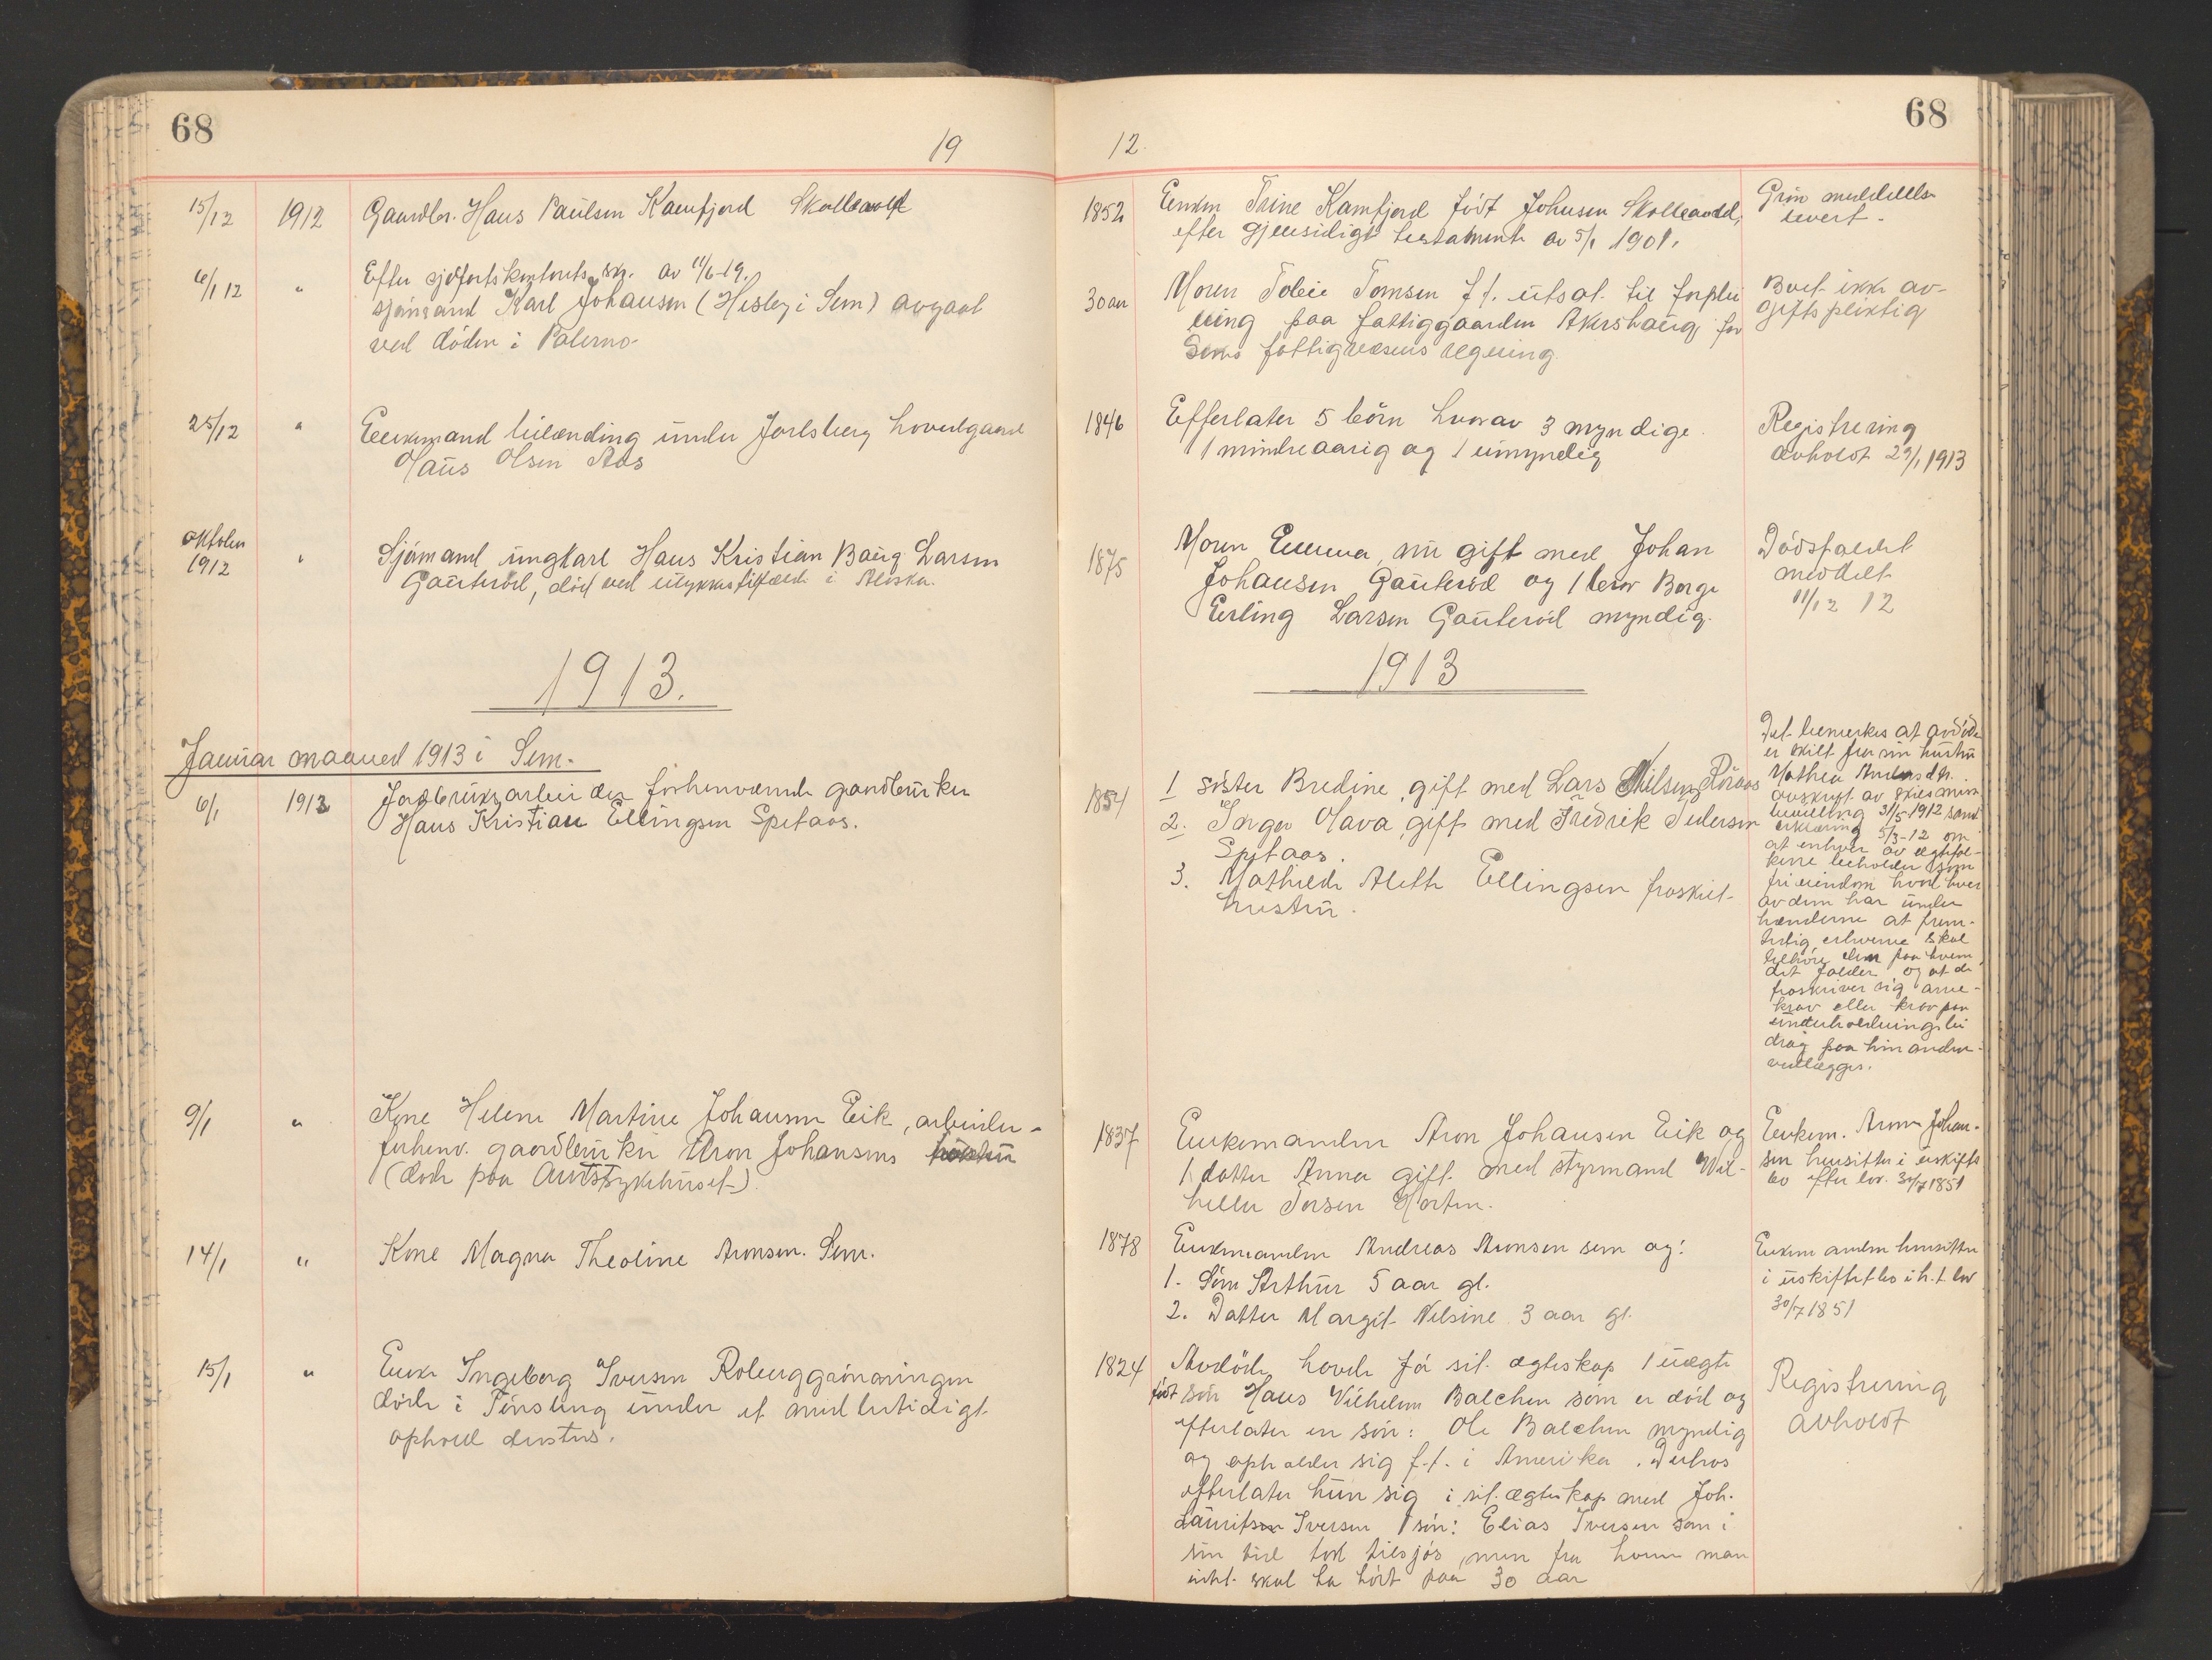 68
19
15/12 1912 Gaardbr. Hans Paulsen Kamfjord Skallevold
6/1 12 " Efter sjøfartskontorets skr. av 11/6-19.
sjömand Karl Johansen (Hesby i Sem) avgaat
ved döden i Palermo.
25/12 " Enkemand leilænding under Jarlsberg hovedgaard
Hans Olsen Aas
oktober
1912 " Sjömand ungkarl Hans Kristian Baug Larsen
Gauteröd, död ved ulykkestilfælde i Alaska.
1913.
Januar maaned 1913 i Sem.
6/1 1913 Jordbruksarbeider forhenværende gaardbruker
Hans Kristian Ellingsen Spetaas.
9/1 " Kone Helene Martine Johansen Eik, arbeider
forhenv. gaardbruker Aron Johansens hustru
(döde paa Amtssykehuset)
14/1 " Kone Magna Theoline Aronsen. Sem.
15/1 " Enke Ingeborg Iversen Roberggrönningen
döde i Tönsberg under et midlertidigt
ophold dersteds.
68
12
1852 Enken Trine Kamfjord född Johnsen Skallevold,
efter gjensidigt testamente av 5/1 1901.
Grön meddelelse
levert.
30 aar Moren Toline Tomsen f.t. utsat til forplei
ning paa fattiggaarden Akershaug, for
Sems fattigvæsens regning.
Boet ikke av-
giftspliktig
1846 Efterlater 5 börn hvorav 3 myndige.
1 mindreaarig og 1 umyndig
Registrering
avholdt 29/1 1913
1875 Moren Emma, nu gift med Johan
Johansen Gauteröd og 1 bror Borge
Erling Larsen Gauteröd myndig.
Dödsfaldet
meddelt
11/12 12
1913
1854 1 söster Bredine, gift med Lars Nilsen Röraas
2. Inger Olava, gift med Fredrik Pedersen
Spetaas.
3. Mathilde Aleth Ellingsen fraskilt
hustru.
Det bemerkes at avdöde
er skilt fra sin hustru
Mathea Andersdtr.
avskrift av skilsmisse
bevilling 31/5 1912 samt
erklæring 5/3-12 om
at enhver av ægtefol-
kene beholder som
fri eiendom hvad hver
av dem har under
hænderne at frem-
tidig erhverve skal
tilhöre dem paa hvem
det falder, og at de
fraskriver sig arve-
krav eller krav paa
underholdningsbi
drag paa hinanden
vedlægges.
1837 Enkemanden Aron Johansen Eik og
1 datter Anna gift med styrmand Wil-
helm Torsen Horten.
Enkem. Aron Johan-
sen hensitter i uskifte
bo efter lov. 30/7 1851
1878 Enkemanden Andreas Aronsen sem og:
1. Sön Arthur 5 aar gl.
2. Datter Margit Nilsine 3 aar gl.
Enkemanden hensitter
i uskiftet bo i h.t. lov
30/7 1851
1824 Avdöde havde för sit ægteskap 1 uægte
född sön Hans Vilhelm Balchen som er död og
efterlater en sön: Ole Balchen myndig
og opholder sig f.t. i Amerika. Derhos
efterlater hun sig i sit ægteskap med Joh.
Lauritsen Iversen 1 sön: Elias Iversen som i
sin tid drog tilsjös, men fra hvem man
intet skal ha hört paa 30 aar
Registrering
avholdt